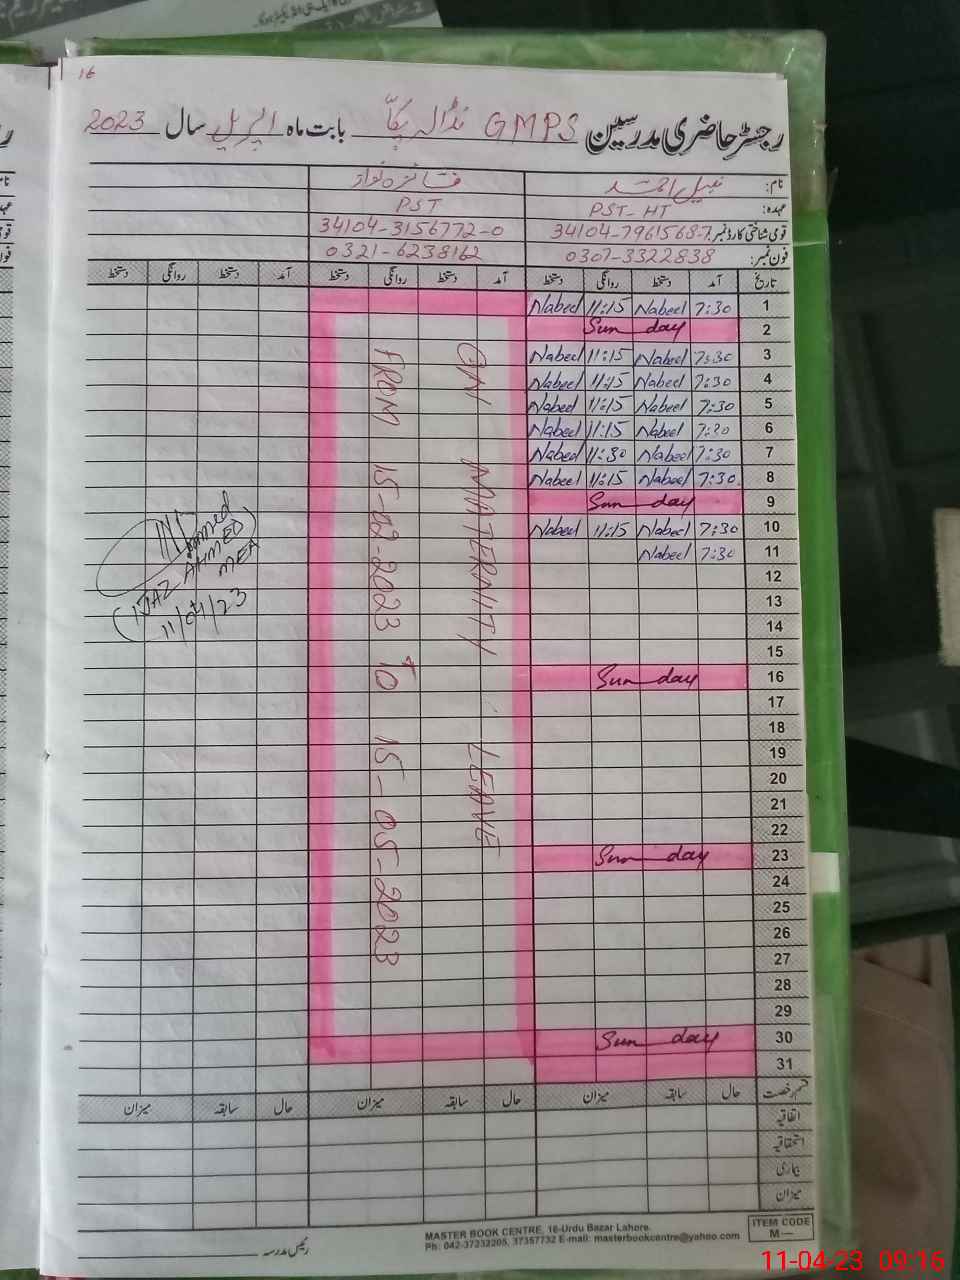 16
رجسٹر حاضری مدرسین GMPS نڈالہ پکّا بابت ماہ اپریل سال 2023
نام: نبیل احمد فائزہ نواز
عہدہ: PST-HT PST
قومی شناختی کارڈ نمبر: 34104-7961568-7 34104-3156772-0
فون نمبر: 0307-3322838 0321-6238162
تاریخ آمد دستخط روانگی دستخط آمد دستخط روانگی دستخط آمد دستخط روانگی دستخط
1 7:30 Nabeel 11:15 Nabeel
2 Sun day
3 7:30 Nabeel 11:15 Nabeel
4 7:30 Nabeel 11:15 Nabeel
5 7:30 Nabeel 11:15 Nabeel
6 7:30 Nabeel 11:15 Nabeel
7 7:30 Nabeel 11:30 Nabeel
8 7:30 Nabeel 11:15 Nabeel
9 Sun day
10 7:30 Nabeel 11:15 Nabeel
11 7:30 Nabeel
12
13
14
15
16 Sun day
17
18
19
20
21
22
23 Sun day
24
25
26
27
28
29
30 Sun day
31
ON MATERNITY LEAVE
FROM 15-02-2023 TO 15-05-2023
(IJAZ AHMED)
MEA
11/04/23
قسم رخصت حال سابقہ میزان حال سابقہ میزان حال سابقہ میزان
اتفاقیہ
استحقاقیہ
بیماری
میزان
رئیس مدرسہ
MASTER BOOK CENTRE, 16-Urdu Bazar Lahore.
Ph: 042-37232205, 37357732 E-mail: masterbookcentre@yahoo.com
ITEM CODE
M—
11-04-23 09:16